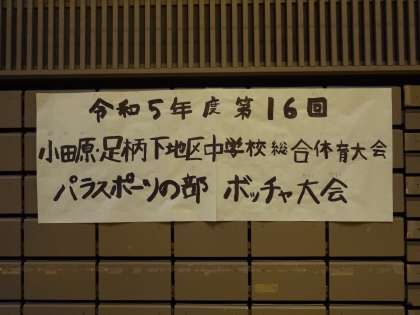 令和5年度第16回
小田原・足柄下地区中学校総合体育大会
パラスポーツの部 ボッチャ大会